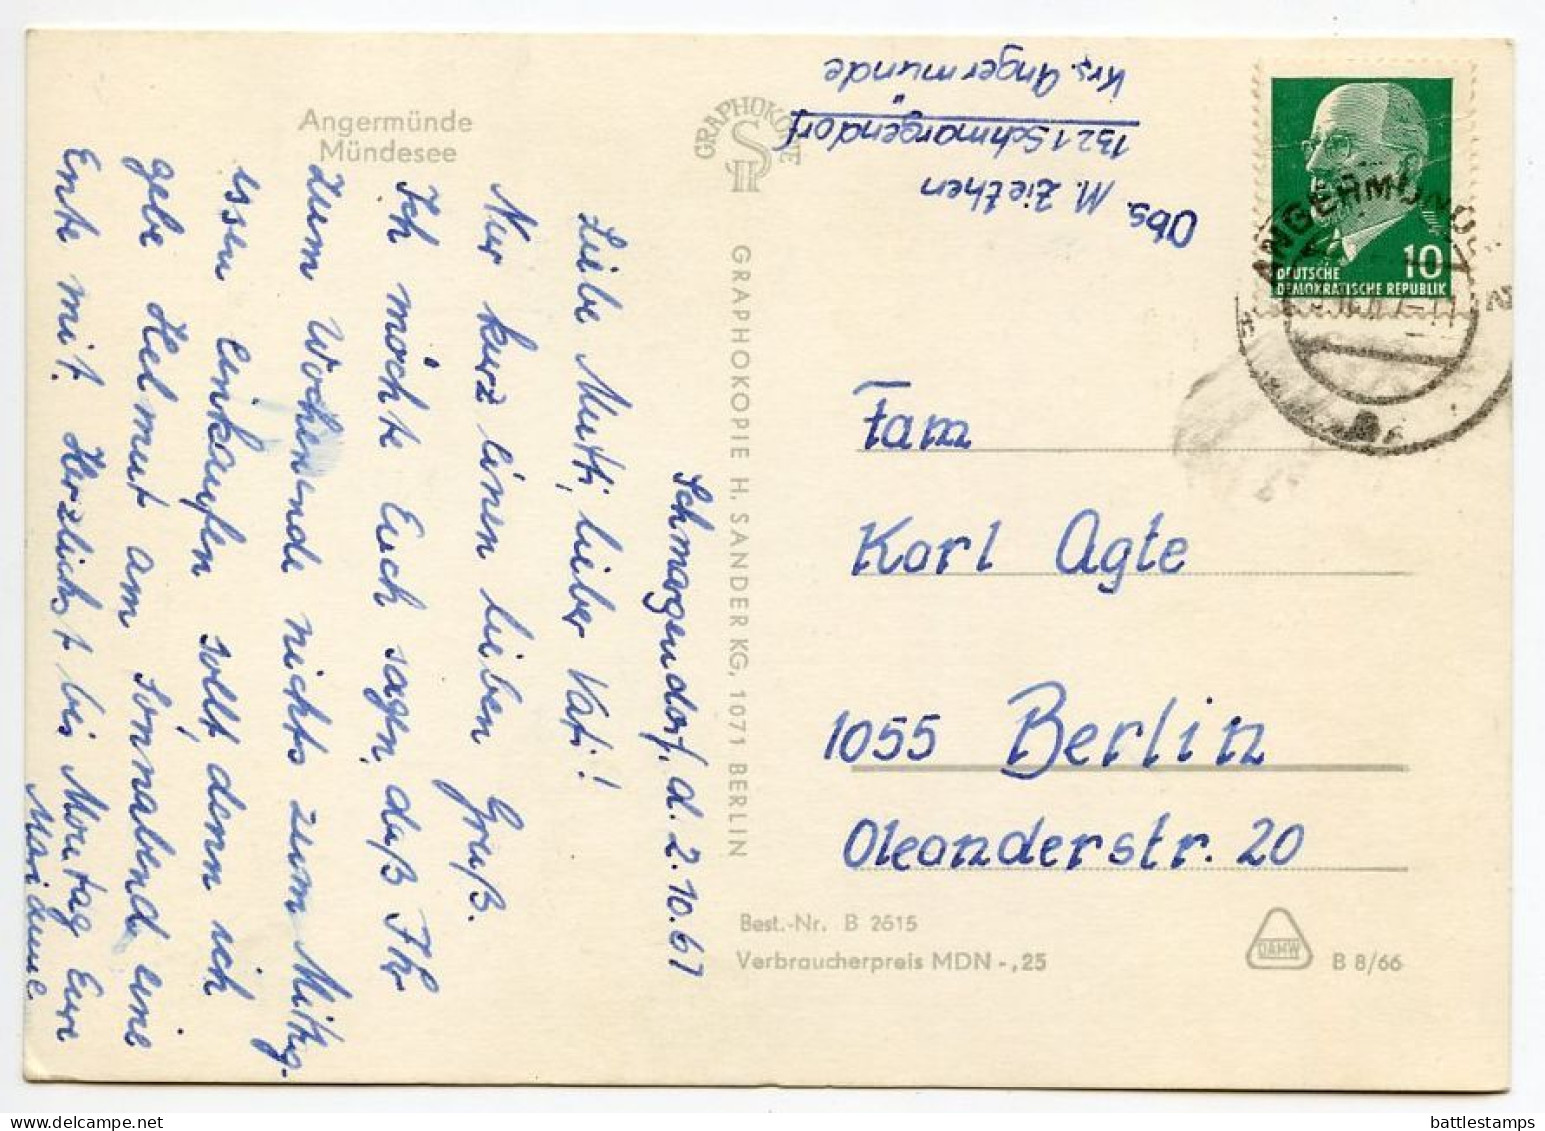 Angermünde
Mündesee
GRAPHOKOPIE
H S
Abs. M. Ziethen
1321 Schmargendorf
Krs. Angermünde
DEUTSCHE
DEMOKRATISCHE REPUBLIK
10
ANGERMÜNDE
Schmargendorf, d. 2.10.67
Liebe Mutti, lieber Vati!
Nur kurz einen lieben Gruß.
Ich möchte Euch sagen, daß Ihr
zum Wochenende nichts zum Mittg.
essen einkaufen sollt, denn ich
gebe Helmut am Sonnabend eine
Ente mit. Herzlichst bis Montag Eure
Marianne
GRAPHOKOPIE H. SANDER KG, 1071 BERLIN
Fam
Karl Agte
1055 Berlin
Oleanderstr. 20
Best.-Nr. B 2615
Verbraucherpreis MDN -,25
DAHW
B 8/66
battlestamps